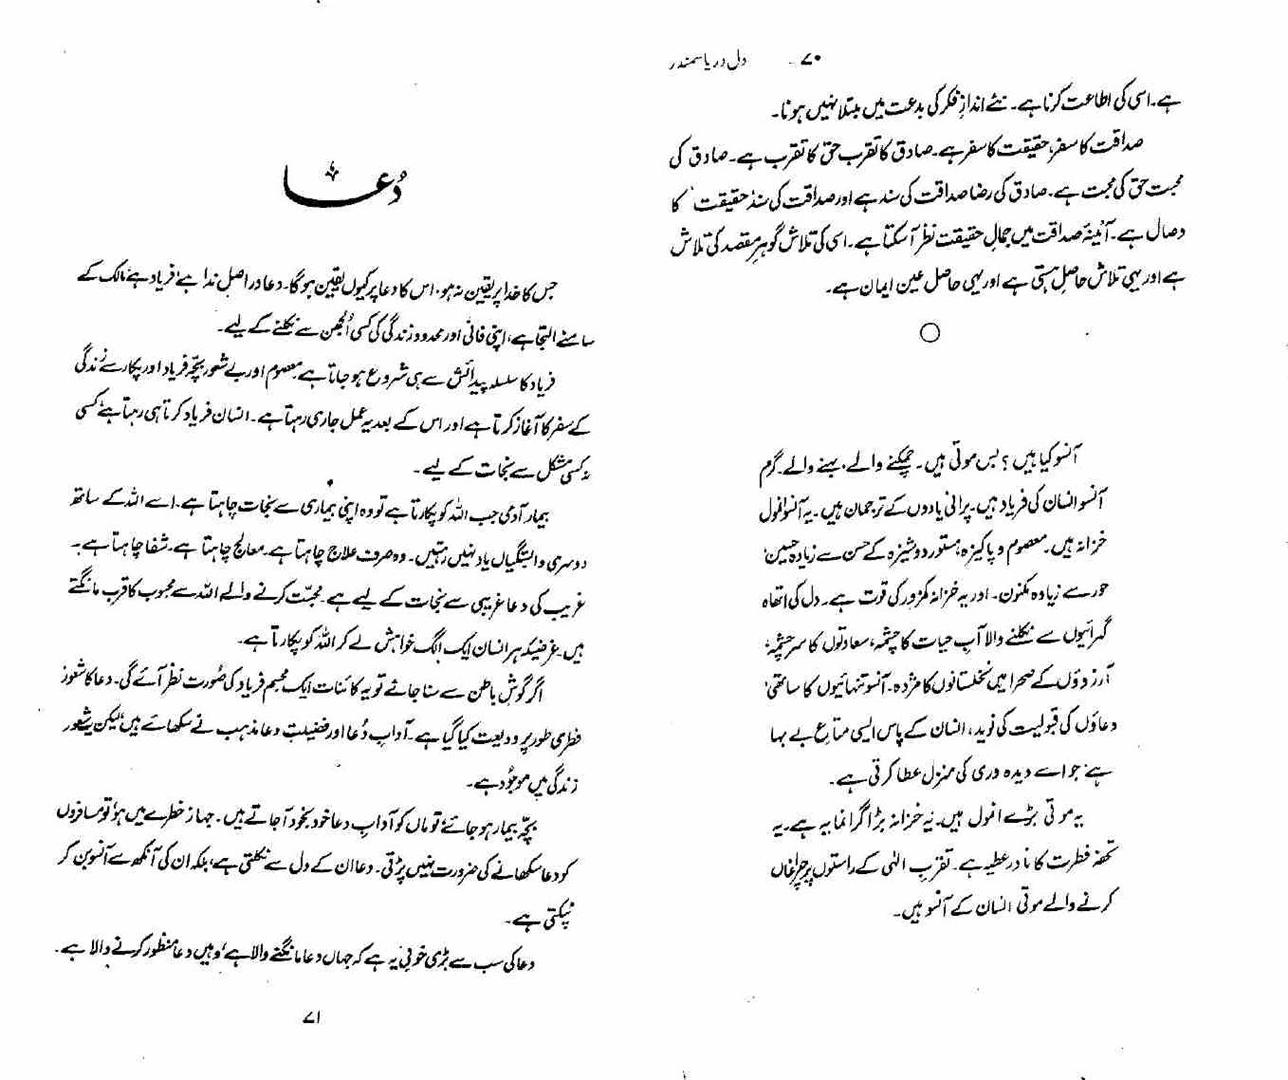 ۷۰ - دل دریا سمندر
ہے۔ اسی کی اطاعت کرنا ہے۔ نئے اندازِ فکر کی بدعت میں مبتلا نہیں ہونا۔
صداقت کا سفر، حقیقت کا سفر ہے۔ صادق کا تقرب حق کا تقرب ہے۔ صادق کی
محبت حق کی محبت ہے۔ صادق کی رضا صداقت کی سند ہے اور صداقت کی سند، حقیقت کا
وصال ہے۔ آئینۂ صداقت میں جمالِ حقیقت نظر آ سکتا ہے۔ اسی کی تلاش گوہرِ مقصد کی تلاش
ہے اور یہی تلاش حاصلِ ہستی ہے اور یہی حاصل عین ایمان ہے۔
آنسو کیا ہیں؟ بس موتی ہیں۔ چمکنے والے، بہنے والے۔ گرم
آنسو انسان کی فریاد ہیں۔ پرانی یادوں کے ترجمان ہیں۔ یہ آنسو انمول
خزانہ ہیں۔ معصوم و پاکیزہ، مستور دوشیزہ کے حسن سے زیادہ حسین،
حور سے زیادہ مکنون۔ اور یہ خزانہ کمزور کی قوت ہے۔ دل کی اتھاہ
گہرائیوں سے نکلنے والا آبِ حیات کا چشمہ، سعادتوں کا سرچشمہ،
آرزوؤں کے صحرا میں نخلستانوں کا مژدہ۔ آنسو تنہائیوں کا ساتھی،
دعاؤں کی قبولیت کی نوید، انسان کے پاس ایسی متاعِ بے بہا
ہے جو اسے دیدہ وری کی منزل عطا کرتی ہے۔
یہ موتی بڑے انمول ہیں۔ یہ خزانہ بڑا گراں مایہ ہے۔ یہ
تحفہ فطرت کا نادر عطیہ ہے۔ تقربِ الٰہی کے راستوں پر چراغاں
کرنے والے موتی انسان کے آنسو ہیں۔
دُعا
جس کا خدا پر یقین نہ ہو، اس کا دعا پر کیوں یقین ہوگا۔ دعا دراصل ندا ہے، فریاد ہے، مالک کے
سامنے التجا ہے، اپنی فانی اور محدود زندگی کی کسی اُلجھن سے نکلنے کے لیے۔
فریاد کا سلسلہ پیدائش سے ہی شروع ہو جاتا ہے۔ معصوم اور بے شعور بچہ فریاد اور پکار سے زندگی
کے سفر کا آغاز کرتا ہے اور اس کے بعد یہ عمل جاری رہتا ہے۔ انسان فریاد کرتا ہی رہتا ہے، کسی
نہ کسی مشکل سے نجات کے لیے۔
بیمار آدمی جب اللہ کو پکارتا ہے تو وہ اپنی بیماری سے نجات چاہتا ہے۔ اسے اللہ کے ساتھ
دوسری وابستگیاں یاد نہیں رہتیں۔ وہ صرف علاج چاہتا ہے۔ معالج چاہتا ہے۔ شفا چاہتا ہے۔
غریب کی دعا غریبی سے نجات کے لیے ہے۔ محبت کرنے والے اللہ سے محبوب کا قرب مانگتے
ہیں۔ غرضیکہ ہر انسان ایک الگ خواہش لے کر اللہ کو پکارتا ہے۔
اگر گوشِ باطن سے سنا جائے تو یہ کائنات ایک مجسم فریاد کی صُورت نظر آئے گی۔ دعا کا شعور
فطری طور پر ودیعت کیا گیا ہے۔ آدابِ دُعا اور فضیلتِ دعا مذہب نے سکھائے ہیں، لیکن یہ شعور
زندگی میں موجُود ہے۔
بچہ بیمار ہو جائے تو ماں کو آدابِ دعا خود بخود آ جاتے ہیں۔ جہاز خطرے میں ہو تو مسافروں
کو دعا سکھانے کی ضرورت نہیں پڑتی۔ دعا ان کے دل سے نکلتی ہے، بلکہ ان کی آنکھ سے آنسو بن کر
ٹپکتی ہے۔
دعا کی سب سے بڑی خوبی یہ ہے کہ جہاں دعا مانگنے والا ہے، وہیں دعا منظور کرنے والا ہے۔
۷۱